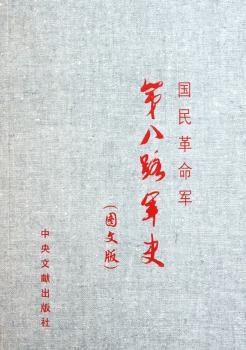 国民革命军
第八路军史
(图文版)
中央文献出版社